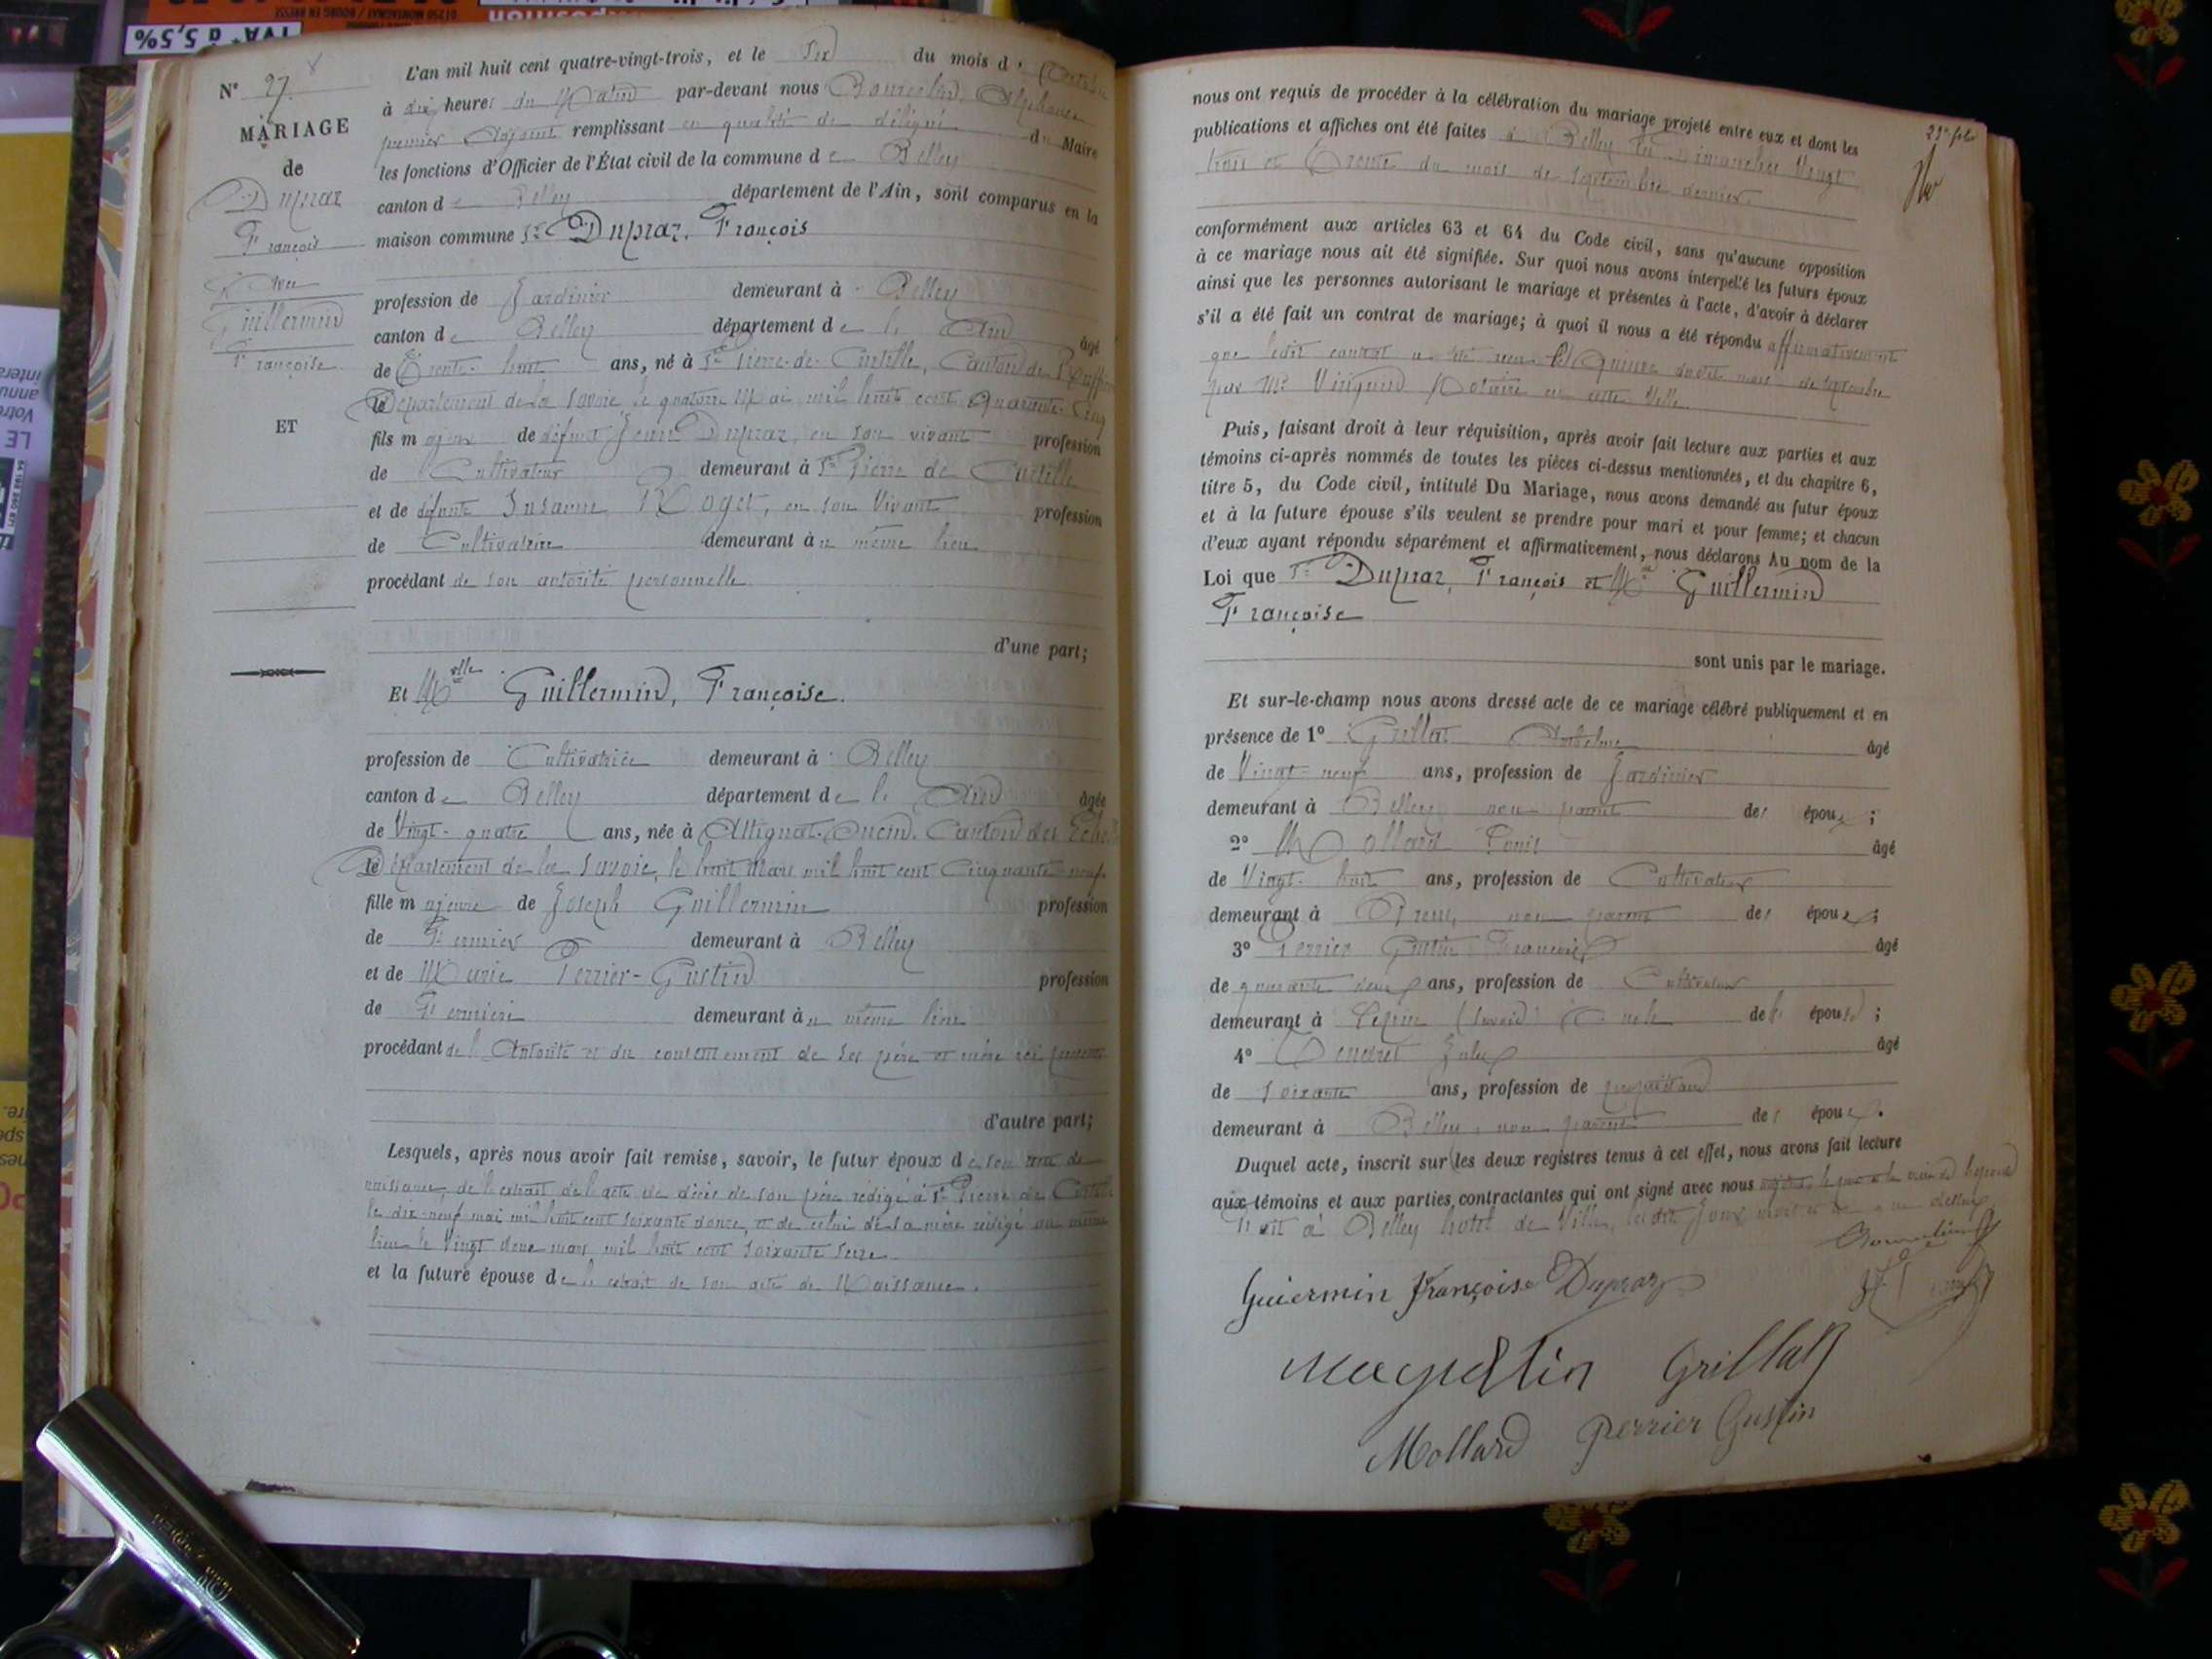 N° 27
MARIAGE
de
Dupraz
François
Guillermin
Françoise
ET
L'an mil huit cent quatre-vingt-trois, et le six du mois d'Octobre
à dix heures du Matin par-devant nous
premier Adjoint remplissant en qualité de délégué du Maire
les fonctions d'Officier de l'État civil de la commune de Belley
canton de Belley département de l'Ain, sont comparus en la
maison commune Sr Dupraz, François
profession de Jardinier demeurant à Belley
canton de Belley département de l'Ain âgé
de Trente-huit ans, né à St Pierre-de-Curtille, Canton de Ruffieux
Département de la Savoie le quatorze Mai mil huit cent Quarante-Cinq
fils majeur de défunt Jean Dupraz, en son vivant profession
de Cultivateur demeurant à St Pierre de Curtille
et de défunte Susanne Roget, en son Vivant profession
de Cultivatrice demeurant au même lieu
procédant de son autorité personnelle
d'une part;
Et Melle Guillermin, Françoise.
profession de Cultivatrice demeurant à Belley
canton de Belley département de l'Ain âgée
de Vingt-quatre ans, née à Attignat-Oncin, Canton des Echelles
Département de la Savoie, le huit Mars mil huit cent Cinquante-neuf.
fille majeure de Joseph Guillermin profession
de Fermier demeurant à Belley
et de Marie Perrier-Gustin profession
de Fermière demeurant au même lieu
procédant de l'Autorité et du consentement de ses père et mère ici présents
d'autre part;
Lesquels, après nous avoir fait remise, savoir, le futur époux de son acte de
naissance, de l'extrait de l'acte de décès de son père rédigé à St Pierre de Curtille
le dix-neuf mai mil huit cent soixante douze, et de celui de sa mère rédigé au même
lieu le Vingt deux mars mil huit cent soixante seize
et la future épouse de l'extrait de son acte de Naissance.
nous ont requis de procéder à la célébration du mariage projeté entre eux et dont les
publications et affiches ont été faites à Belley les Dimanches Vingt
trois et Trente du mois de septembre dernier.
conformément aux articles 63 et 64 du Code civil, sans qu'aucune opposition
à ce mariage nous ait été signifiée. Sur quoi nous avons interpellé les futurs époux
ainsi que les personnes autorisant le mariage et présentes à l'acte, d'avoir à déclarer
s'il a été fait un contrat de mariage; à quoi il nous a été répondu affirmativement
que ledit contrat a été reçu le Quinze dudit mois de septembre
par Me Notaire en cette Ville
Puis, faisant droit à leur réquisition, après avoir fait lecture aux parties et aux
témoins ci-après nommés de toutes les pièces ci-dessus mentionnées, et du chapitre 6,
titre 5, du Code civil, intitulé Du Mariage, nous avons demandé au futur époux
et à la future épouse s'ils veulent se prendre pour mari et pour femme; et chacun
d'eux ayant répondu séparément et affirmativement, nous déclarons Au nom de la
Loi que Sr Dupraz, François et Melle Guillermin
Françoise
sont unis par le mariage.
Et sur-le-champ nous avons dressé acte de ce mariage célébré publiquement et en
présence de 1° Grillat Anthelme âgé
de Vingt-neuf ans, profession de Jardinier
demeurant à Belley non parent des époux;
2° Mollard Louis âgé
de Vingt-huit ans, profession de Cultivateur
demeurant à non parent des époux;
3° Perrier Gustin François âgé
de quarante deux ans, profession de Cultivateur
demeurant à Lépin (Savoie) Oncle de l'épouse;
4° Jules âgé
de soixante ans, profession de propriétaire
demeurant à Belley, non parent des époux.
Duquel acte, inscrit sur les deux registres tenus à cet effet, nous avons fait lecture
aux témoins et aux parties contractantes qui ont signé avec nous
Fait à Belley hôtel de Ville, ledit jour mois et an que dessus
Guiermin Françoise Dupraz
Grillat
Mollard Perrier Gustin